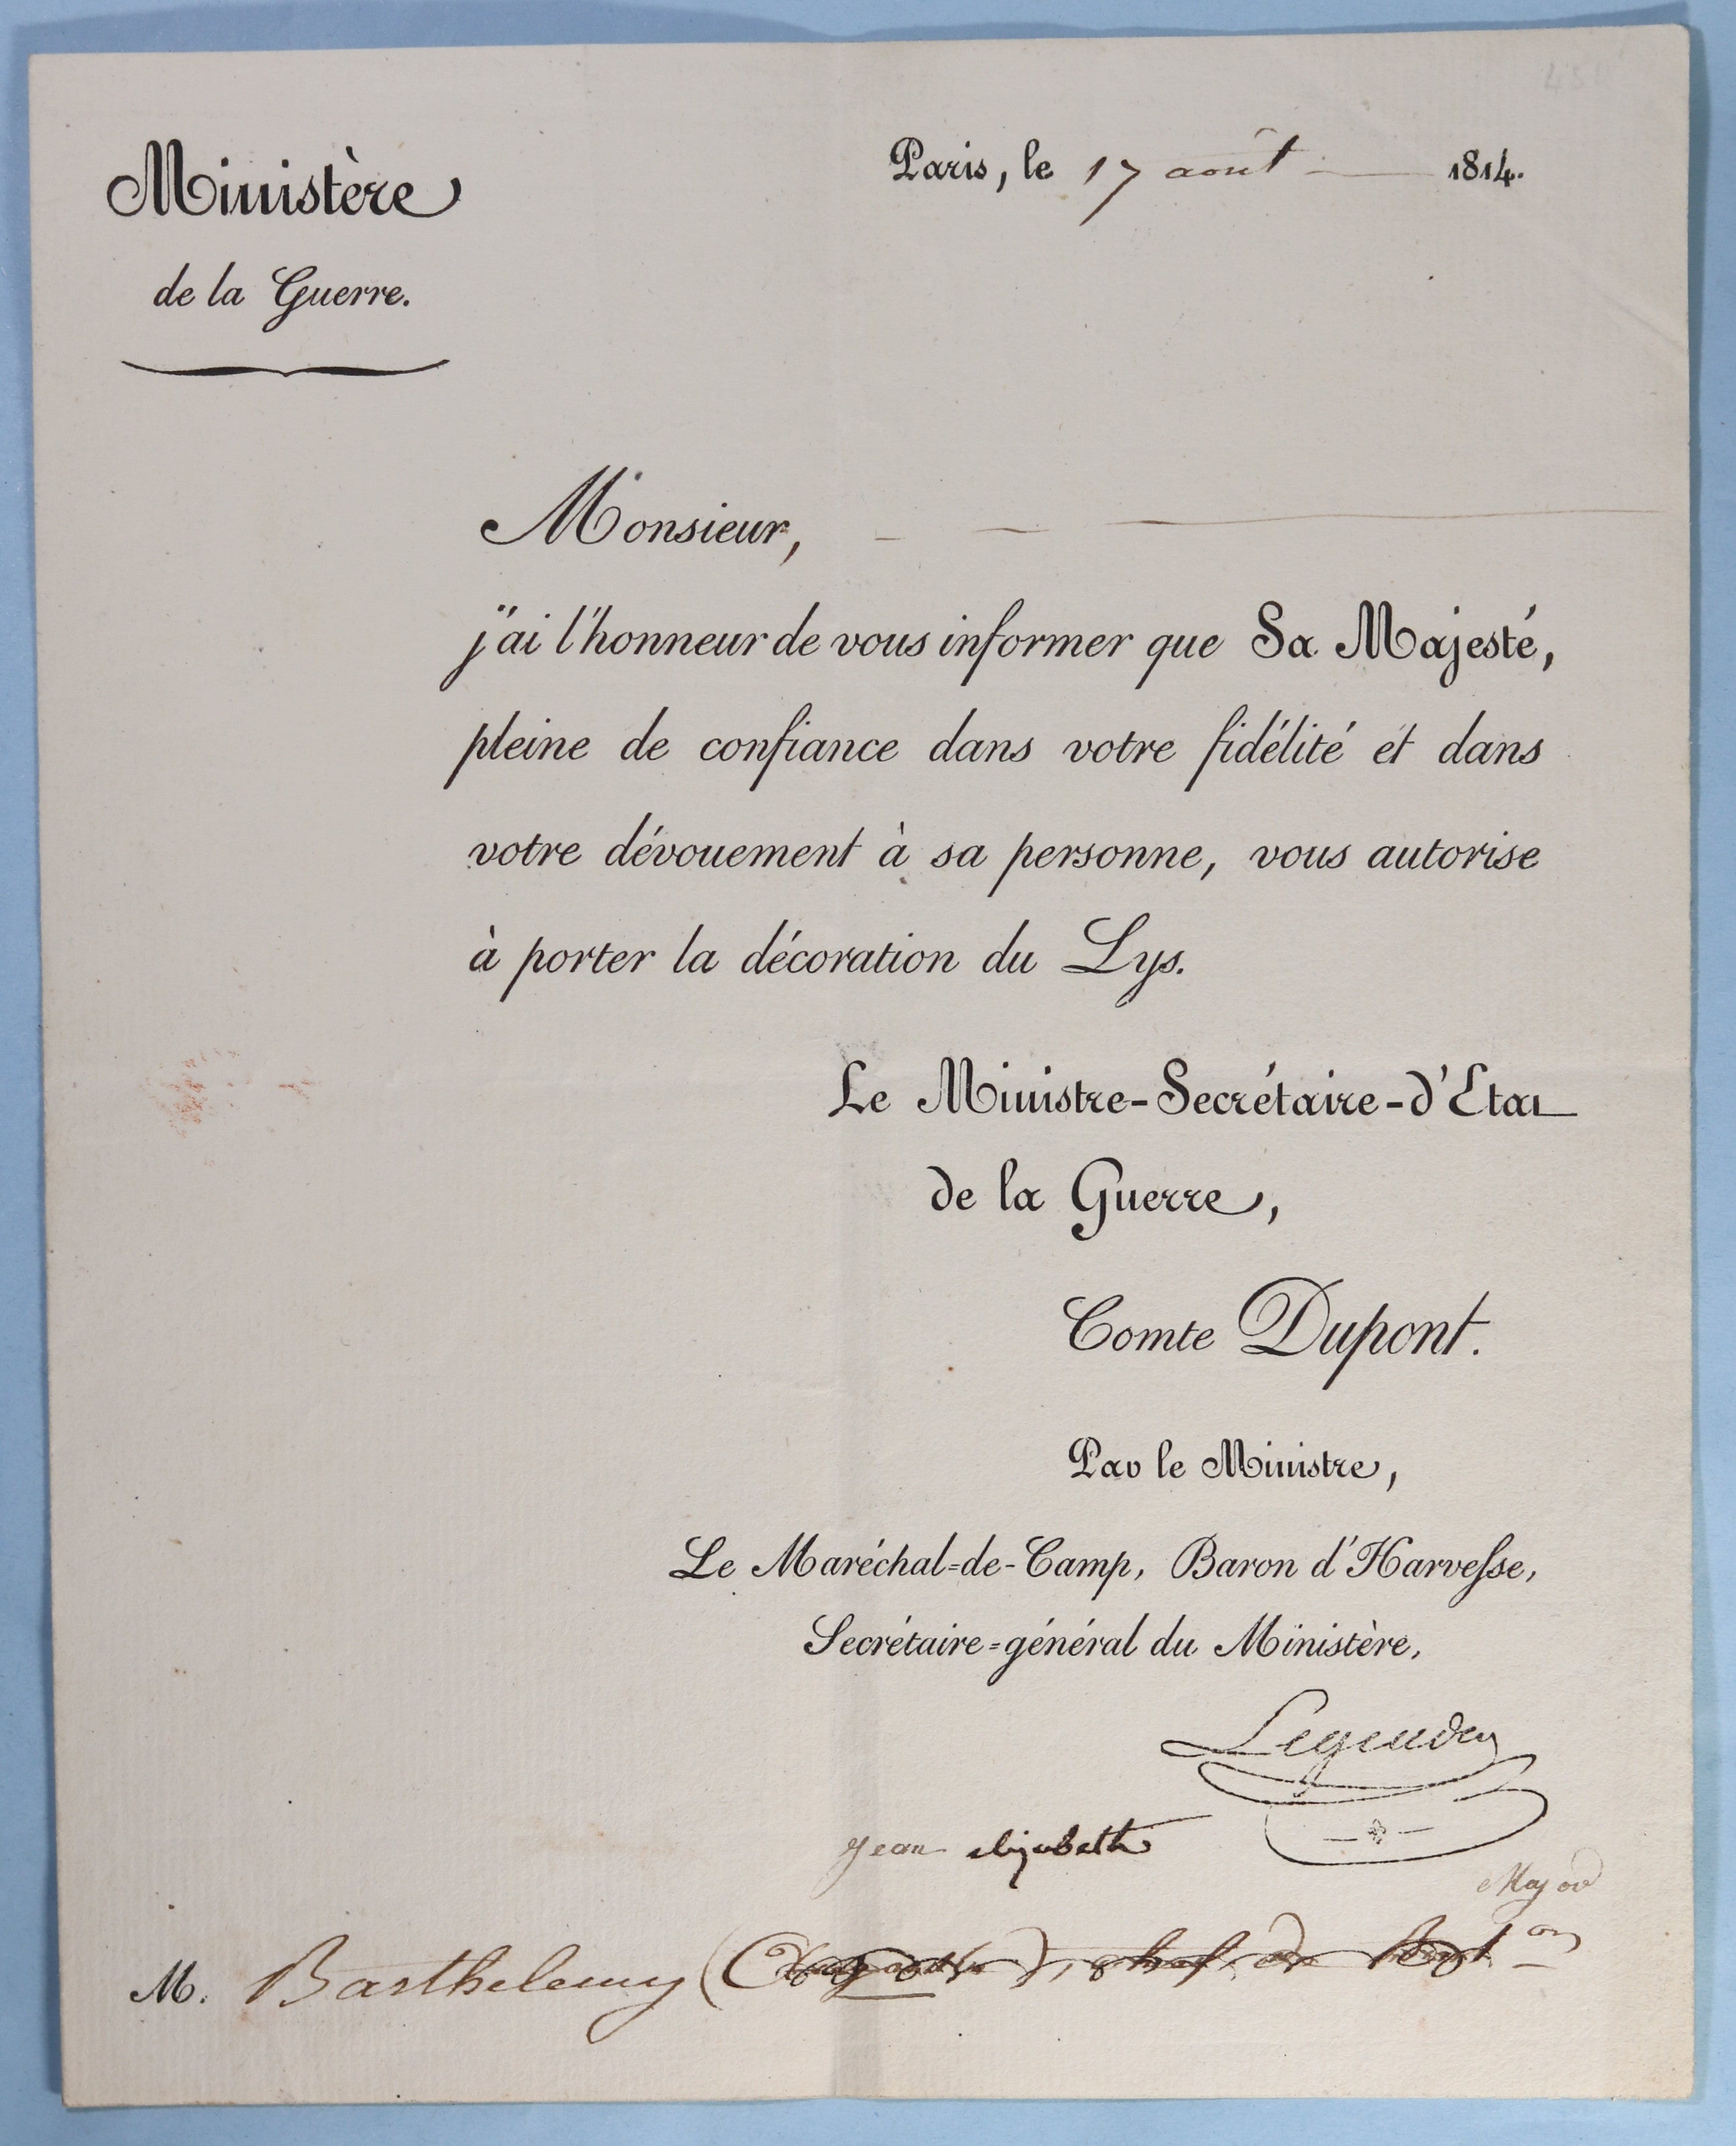 Ministère
de la Guerre.
Paris, le 17 août 1814.
Monsieur,
j'ai l'honneur de vous informer que Sa Majesté,
pleine de confiance dans votre fidélité et dans
votre dévouement à sa personne, vous autorise
à porter la décoration du Lys.
Le Ministre-Secrétaire-d'Etat
de la Guerre,
Comte Dupont.
Par le Ministre,
Le Maréchal-de-Camp, Baron d'Harvesse,
Secrétaire-général du Ministère,
Legendre
jean elizabeth
Major
M. Barthelemy chef de